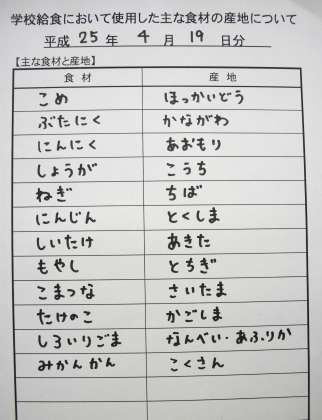 学校給食において使用した主な食材の産地について
平成 25 年 4 月 19 日分
【主な食材と産地】
食材 産地
こめ ほっかいどう
ぶたにく かながわ
にんにく あおもり
しょうが こうち
ねぎ ちば
にんじん とくしま
しいたけ あきた
もやし とちぎ
こまつな さいたま
たけのこ かごしま
しろいりごま なんべい・あふりか
みかんかん こくさん